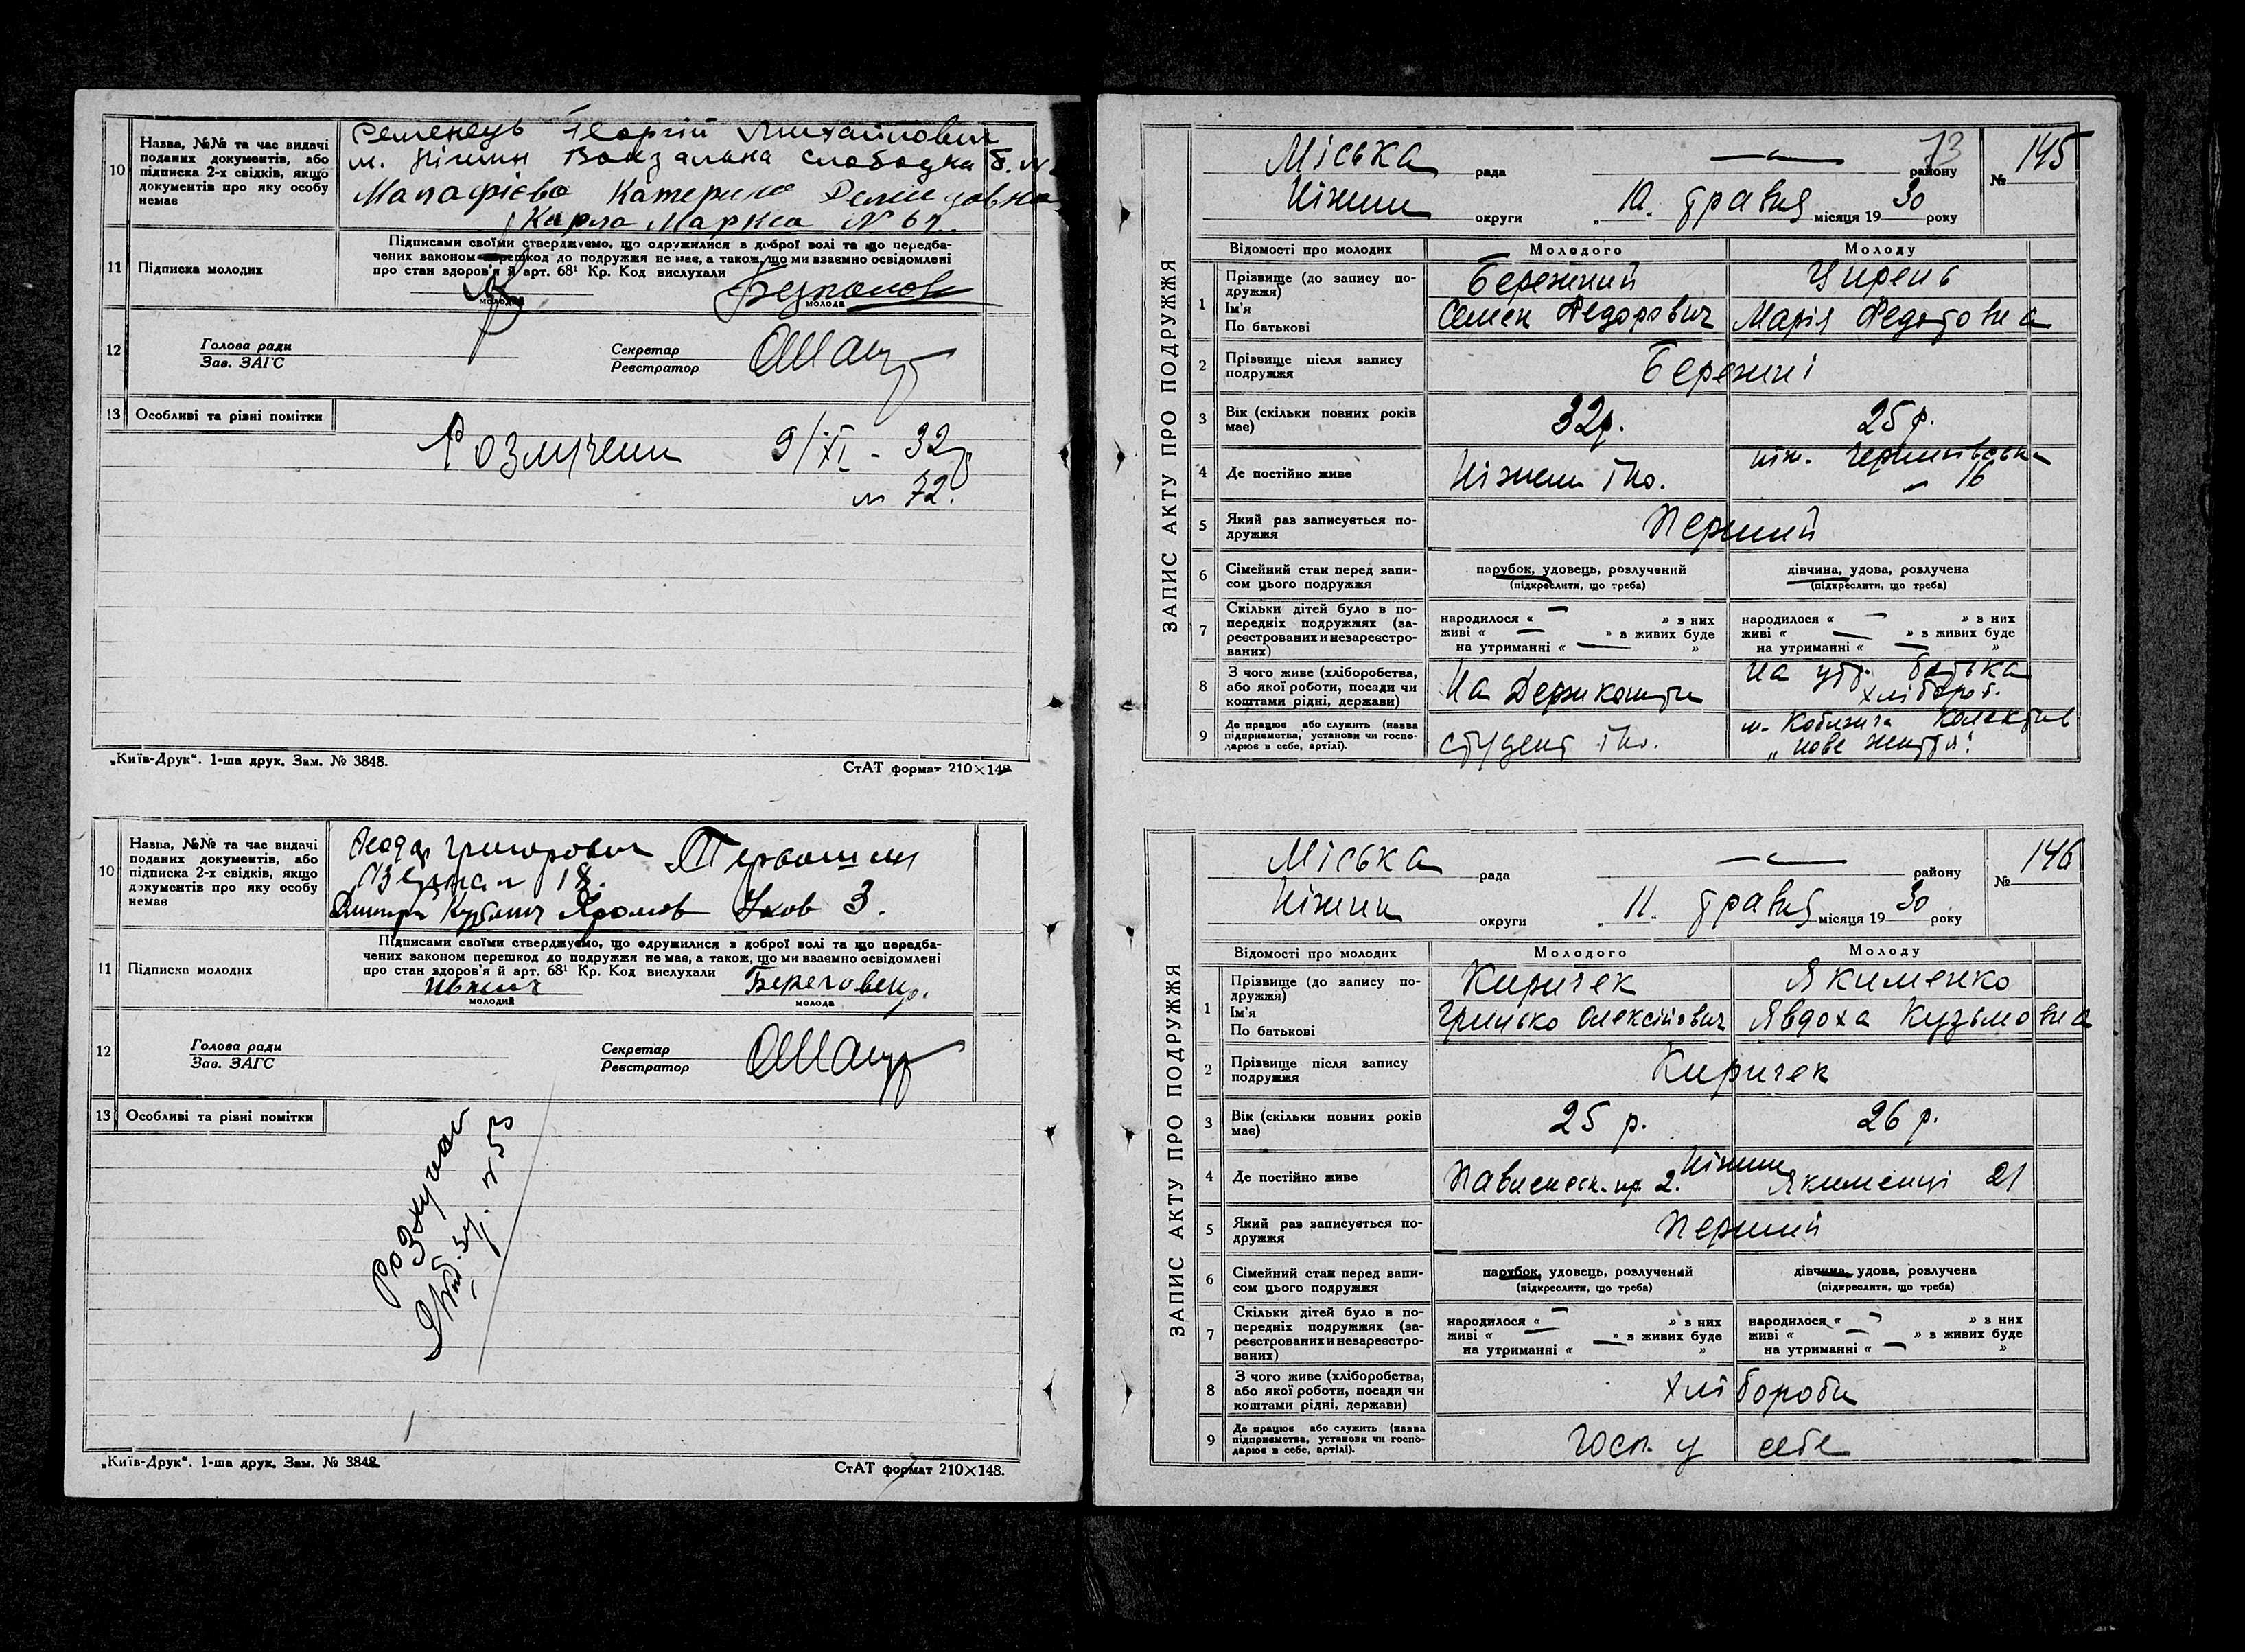 10
Назва, №№ та час видачі
поданих документів, або
підписка 2-х свідків, якщо
документів про яку особу
немає
Семенець Георгій Михайлович
м. Ніжин Вокзальна слободка б. №
Катерина
Карла Маркса N 67
11
Підписка молодих
Підписами своїми стверджуємо, що одружилися з доброї волі та що передба-
чених законом перешкод до подружжя не має, а також, що ми взаємно освідомлені
про стан здоров'я й арт. 68¹ Кр. Код вислухали
молодий
молода
12
Голова ради
Зав. ЗАГС
Секретар
Реєстратор
13
Особливі та різні помітки
Розлучени 9/XI - 32р
N 72.
„Київ-Друк“. 1-ша друк. Зам. № 3848.
СтАТ формат 210×148
10
Назва, №№ та час видачі
поданих документів, або
підписка 2-х свідків, якщо
документів про яку особу
немає
Григорович
18.
3.
11
Підписка молодих
Підписами своїми стверджуємо, що одружилися з доброї волі та що передба-
чених законом перешкод до подружжя не має, а також, що ми взаємно освідомлені
про стан здоров'я й арт. 68¹ Кр. Код вислухали
молодий
молода
12
Голова ради
Зав. ЗАГС
Секретар
Реєстратор
13
Особливі та різні помітки
N 53
„Київ-Друк“. 1-ша друк. Зам. № 3848
СтАТ формат 210×148.
ЗАПИС АКТУ ПРО ПОДРУЖЖЯ
73
Міська рада району № 145
Ніжин округи „10. травня місяця 1930 року
Відомості про молодих Молодого Молоду
1
Прізвище (до запису по-
дружжя)
Ім'я
По батькові
Бережний Цирень
Семен Федорович Марія Федотовна
2
Прізвище після запису
подружжя
Бережні
3
Вік (скільки повних років
має)
32р. 25 р.
4
Де постійно живе
Ніжин ІНО. ніж. Чернигівська
16
5
Який раз записується по-
дружжя
Перший
6
Сімейний стан перед запи-
сом цього подружжя
парубок, удовець, розлучений
(підкреслити, що треба)
дівчина, удова, розлучена
(підкреслити, що треба)
7
Скільки дітей було в по-
передніх подружжях (за-
реєстрованих и незареєстро-
ваних)
народилося « » з них
живі « » з живих буде
на утриманні « »
народилося « » з них
живі « » з живих буде
на утриманні « »
8
З чого живе (хліборобства,
або якої роботи, посади чи
коштами рідні, держави)
На Держ кошти
на утр. батька
хлібороб.
9
Де працює або служить (назва
підприємства, установи чи госпо-
дарює в себе, артілі).
студент ІНО.
м. Кобижча Колектив
„нове життя“
ЗАПИС АКТУ ПРО ПОДРУЖЖЯ
Міська рада району № 146
Ніжин округи „11. травня місяця 1930 року
Відомості про молодих Молодого Молоду
1
Прізвище (до запису по-
дружжя)
Ім'я
По батькові
Киричек Якименко
Грицько Олексійович Явдоха Кузьмовна
2
Прізвище після запису
подружжя
Киричек
3
Вік (скільки повних років
має)
25 р. 26 р.
4
Де постійно живе
Ніжин
2. Якименці 21
5
Який раз записується по-
дружжя
Перший
6
Сімейний стан перед запи-
сом цього подружжя
парубок, удовець, розлучений
(підкреслити, що треба)
дівчина, удова, розлучена
(підкреслити, що треба)
7
Скільки дітей було в по-
передніх подружжях (за-
реєстрованих и незареєстро-
ваних)
народилося « » з них
живі « » з живих буде
на утриманні « »
народилося « » з них
живі « » з живих буде
на утриманні « »
8
З чого живе (хліборобства,
або якої роботи, посади чи
коштами рідні, держави)
хлібороби
9
Де працює або служить (назва
підприємства, установи чи госпо-
дарює в себе, артілі).
Госп. у себе